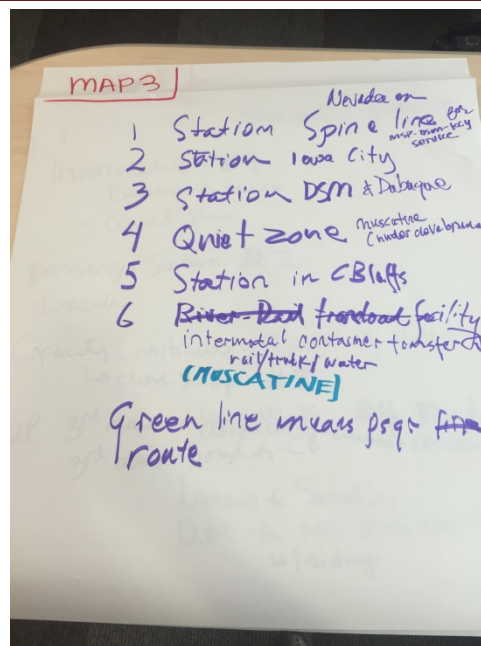 MAP 3
Nevada on
1 Station Spine line for
MSP-DSM-KCY
service
2 Station Iowa City
3 Station DSM & Dubuque
4 Quiet zone Muscatine
(under development
5 Station in CBluffs
6 River-Rail transload facility
intermodal container transfer
rail/truck/water
(MUSCATINE)
Green line means psgr
route